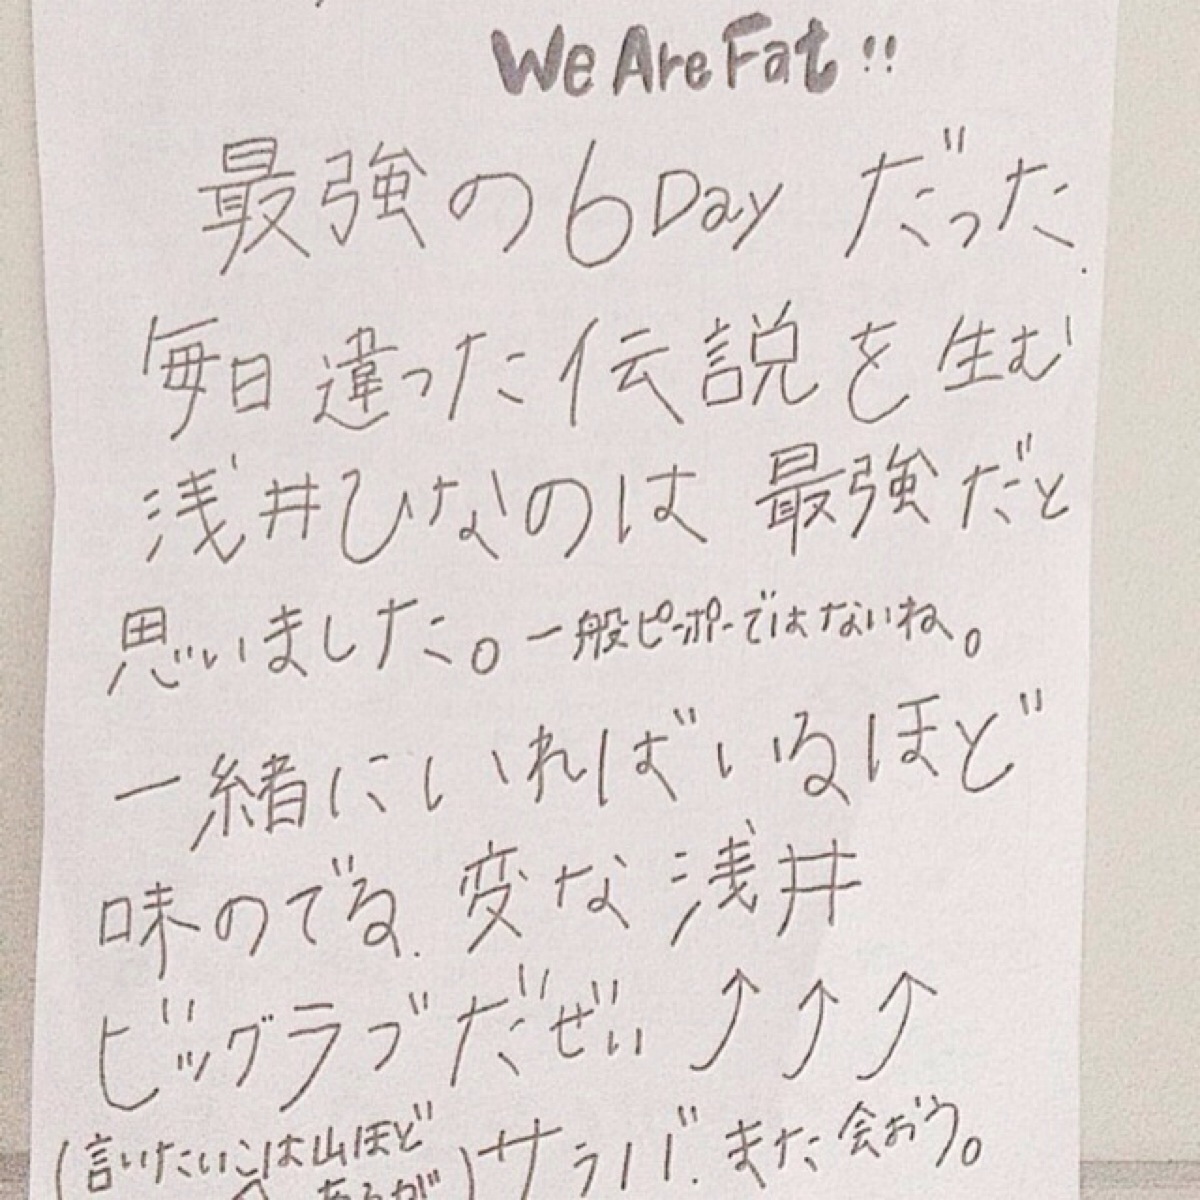 We Are Fat!!
最強の6Dayだった.
毎日違った伝説を生む
浅井ひなのは最強だと
思いました。一般ピーポーではないね。
一緒にいればいるほど
味のでる.変な浅井
ビッグラブだぜぃ↑↑↑
(言いたいことは山ほど
あるが)サラバ.また会おう。